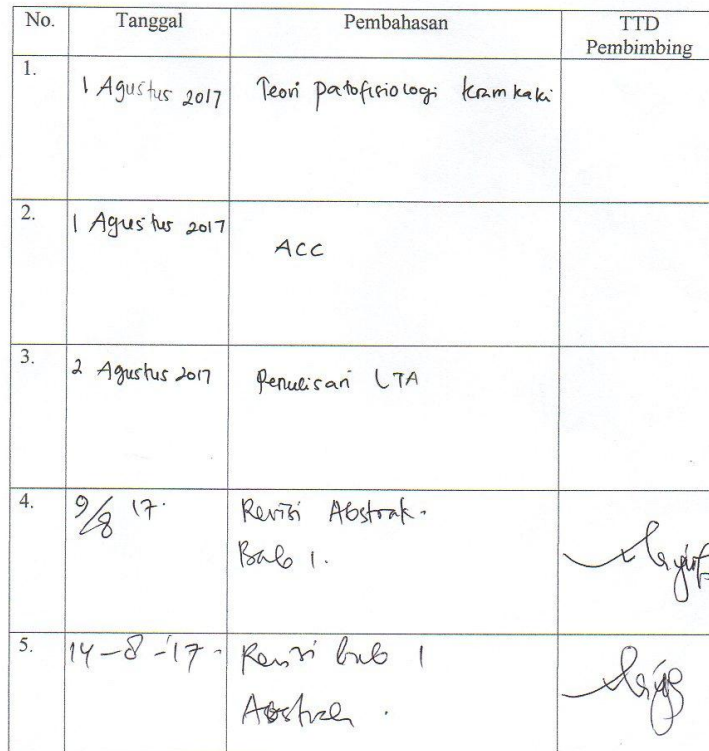 No. Tanggal Pembahasan TTD Pembimbing
1. 1 Agustus 2017 Teori patofisiologi kram kaki
2. 1 Agustus 2017 ACC
3. 2 Agustus 2017 Penulisan LTA
4. 9/8 17. Revisi Abstrak.
Bab 1.
5. 14-8-'17. Revisi bab 1
Abstrak.